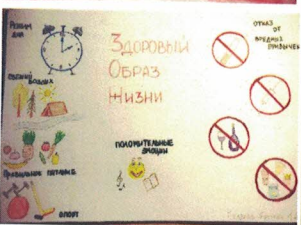 РЕЖИМ
ДНЯ
СВЕЖИЙ
ВОЗДУХ
ПРАВИЛЬНОЕ ПИТАНИЕ
СПОРТ
ЗДОРОВЫЙ
ОБРАЗ
ЖИЗНИ
ПОЛОЖИТЕЛЬНЫЕ
ЭМОЦИИ
ОТКАЗ
ОТ
ВРЕДНЫХ
ПРИВЫЧЕК